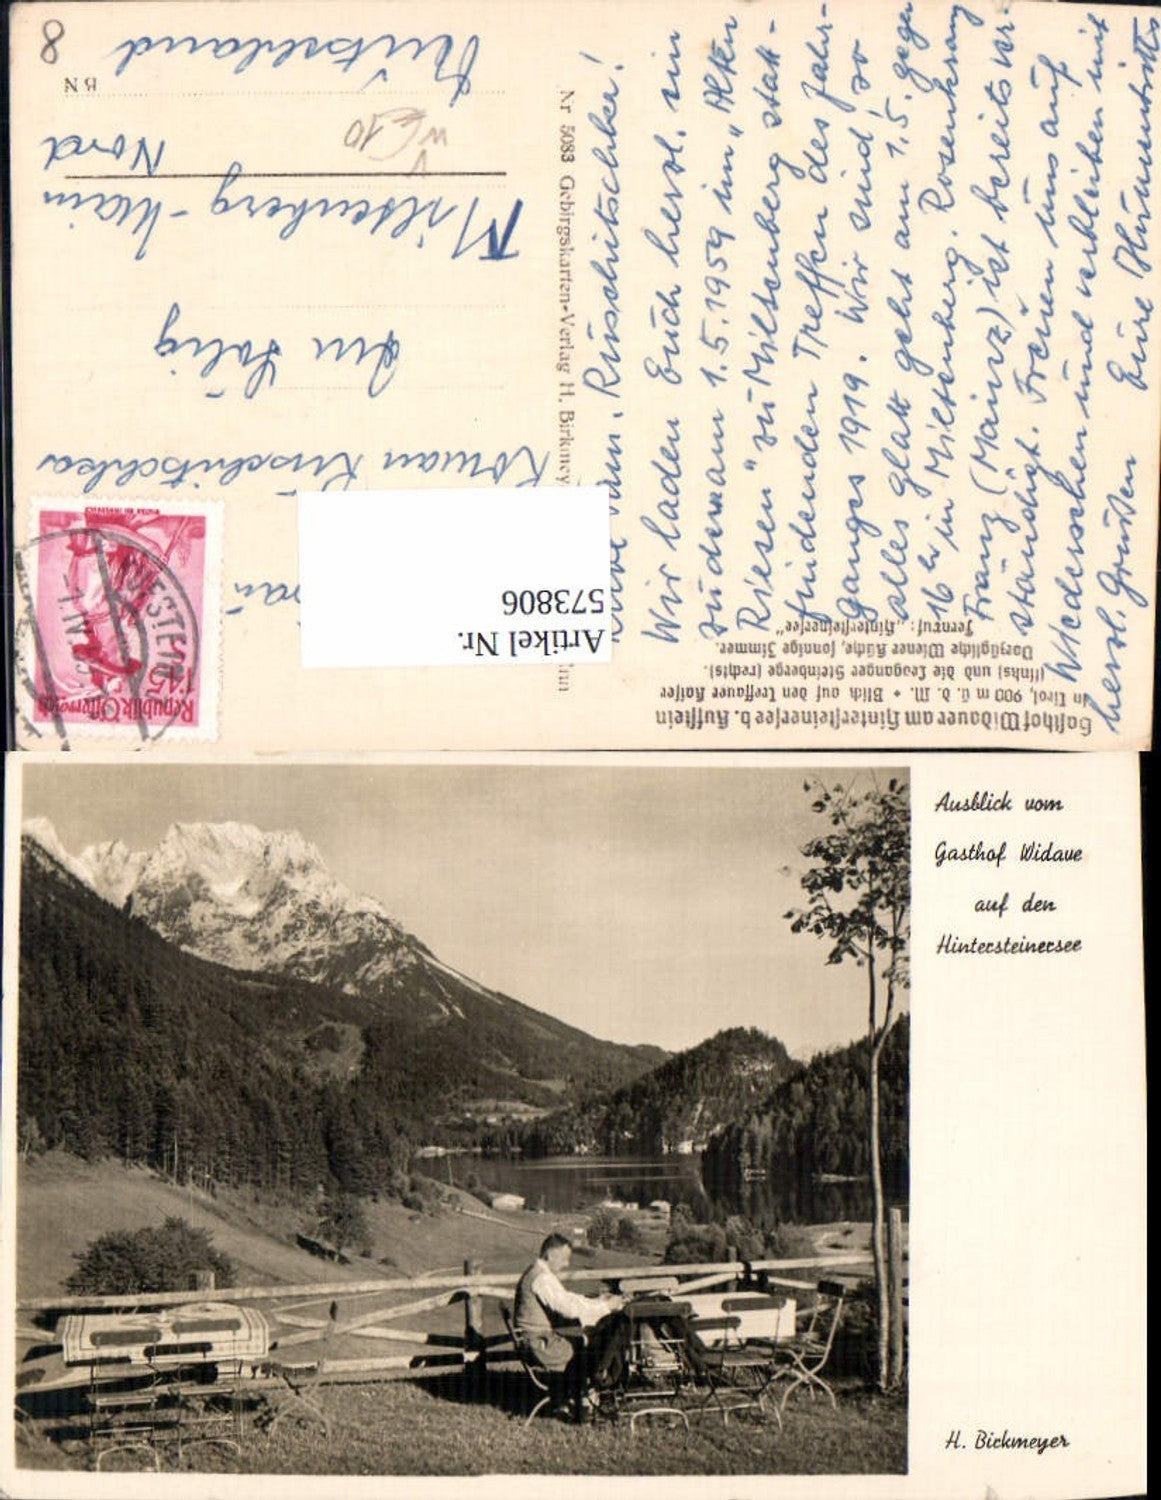 Gasthof Widauer am Hintersteinersee b. Kufstein
in Tirol, 900 m ü. d. M. * Blick auf den Treffauer Kaiser
(links) und die Leoganger Steinberge (rechts).
Vorzügliche Wiener Küche, sonnige Zimmer.
Fernruf: „Hintersteinersee“
Nr 5083 Gebirgskarten-Verlag H. Birkmey
Fam. Ruschitschka!
Wir laden Euch herzl. ein
zu dem am 1.5.1959 im „Alten
Riesen“ zu Miltenberg statt-
findenden Treffen des Jahr-
ganges 1919. Wir sind, so
alles glatt geht am 1.5. gegen
16 h in Miltenberg. Rosenkranz
Franz (Mainz) ist bereits ver-
ständigt. Freuen uns auf
Wiedersehen und verbleiben mit
herzl. Grüßen Eure
Republik Österreich
KUFSTEIN
-1.IV.
Artikel Nr.
573806
Roman Ruschitschka
Miltenberg-Main
Nord
BN
8
Ausblick vom
Gasthof Widaue
auf den
Hintersteinersee
H. Birkmeyer